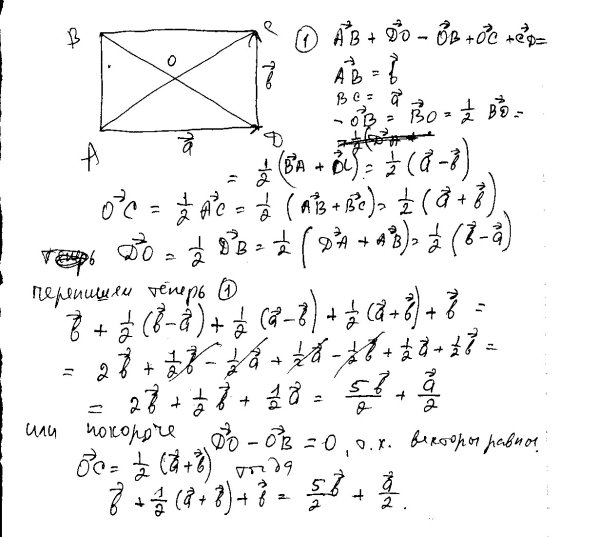 B C
① AB⃗ + DO⃗ − OB⃗ + OC⃗ + CD⃗ =
O
AB⃗ = b⃗
b⃗
BC⃗ = a⃗
− OB⃗ = BO⃗ = 1/2 BD⃗ =
A a⃗ D
= 1/2 (BA⃗ + ) = 1/2 (a⃗ − b⃗)
OC⃗ = 1/2 AC⃗ = 1/2 (AB⃗ + BC⃗) = 1/2 (a⃗ + b⃗)
DO⃗ = 1/2 DB⃗ = 1/2 (DA⃗ + AB⃗) = 1/2 (b⃗ − a⃗)
перепишем теперь ①
b⃗ + 1/2 (b⃗ − a⃗) + 1/2 (a⃗ − b⃗) + 1/2 (a⃗ + b⃗) + b⃗ =
= 2b⃗ + 1/2 b⃗ − 1/2 a⃗ + 1/2 a⃗ − 1/2 b⃗ + 1/2 a⃗ + 1/2 b⃗ =
= 2b⃗ + 1/2 b⃗ + 1/2 a⃗ = 5b⃗/2 + a⃗/2
или покороче DO⃗ − OB⃗ = 0, т.к. векторы равны.
OC⃗ = 1/2 (a⃗ + b⃗) тогда
b⃗ + 1/2 (a⃗ + b⃗) + b⃗ = 5/2 b⃗ + a⃗/2.